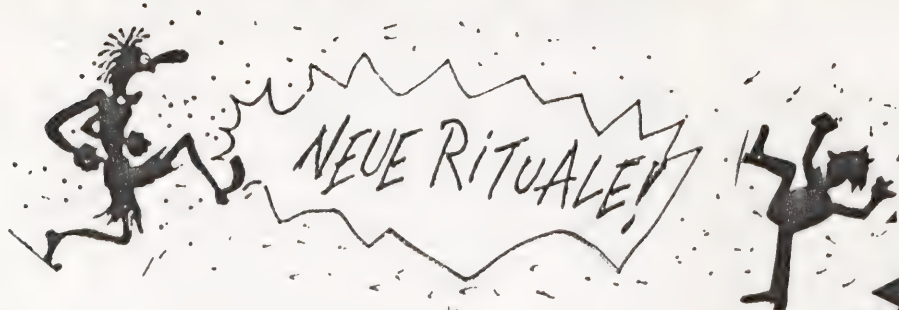 NEUE RiTUALE!